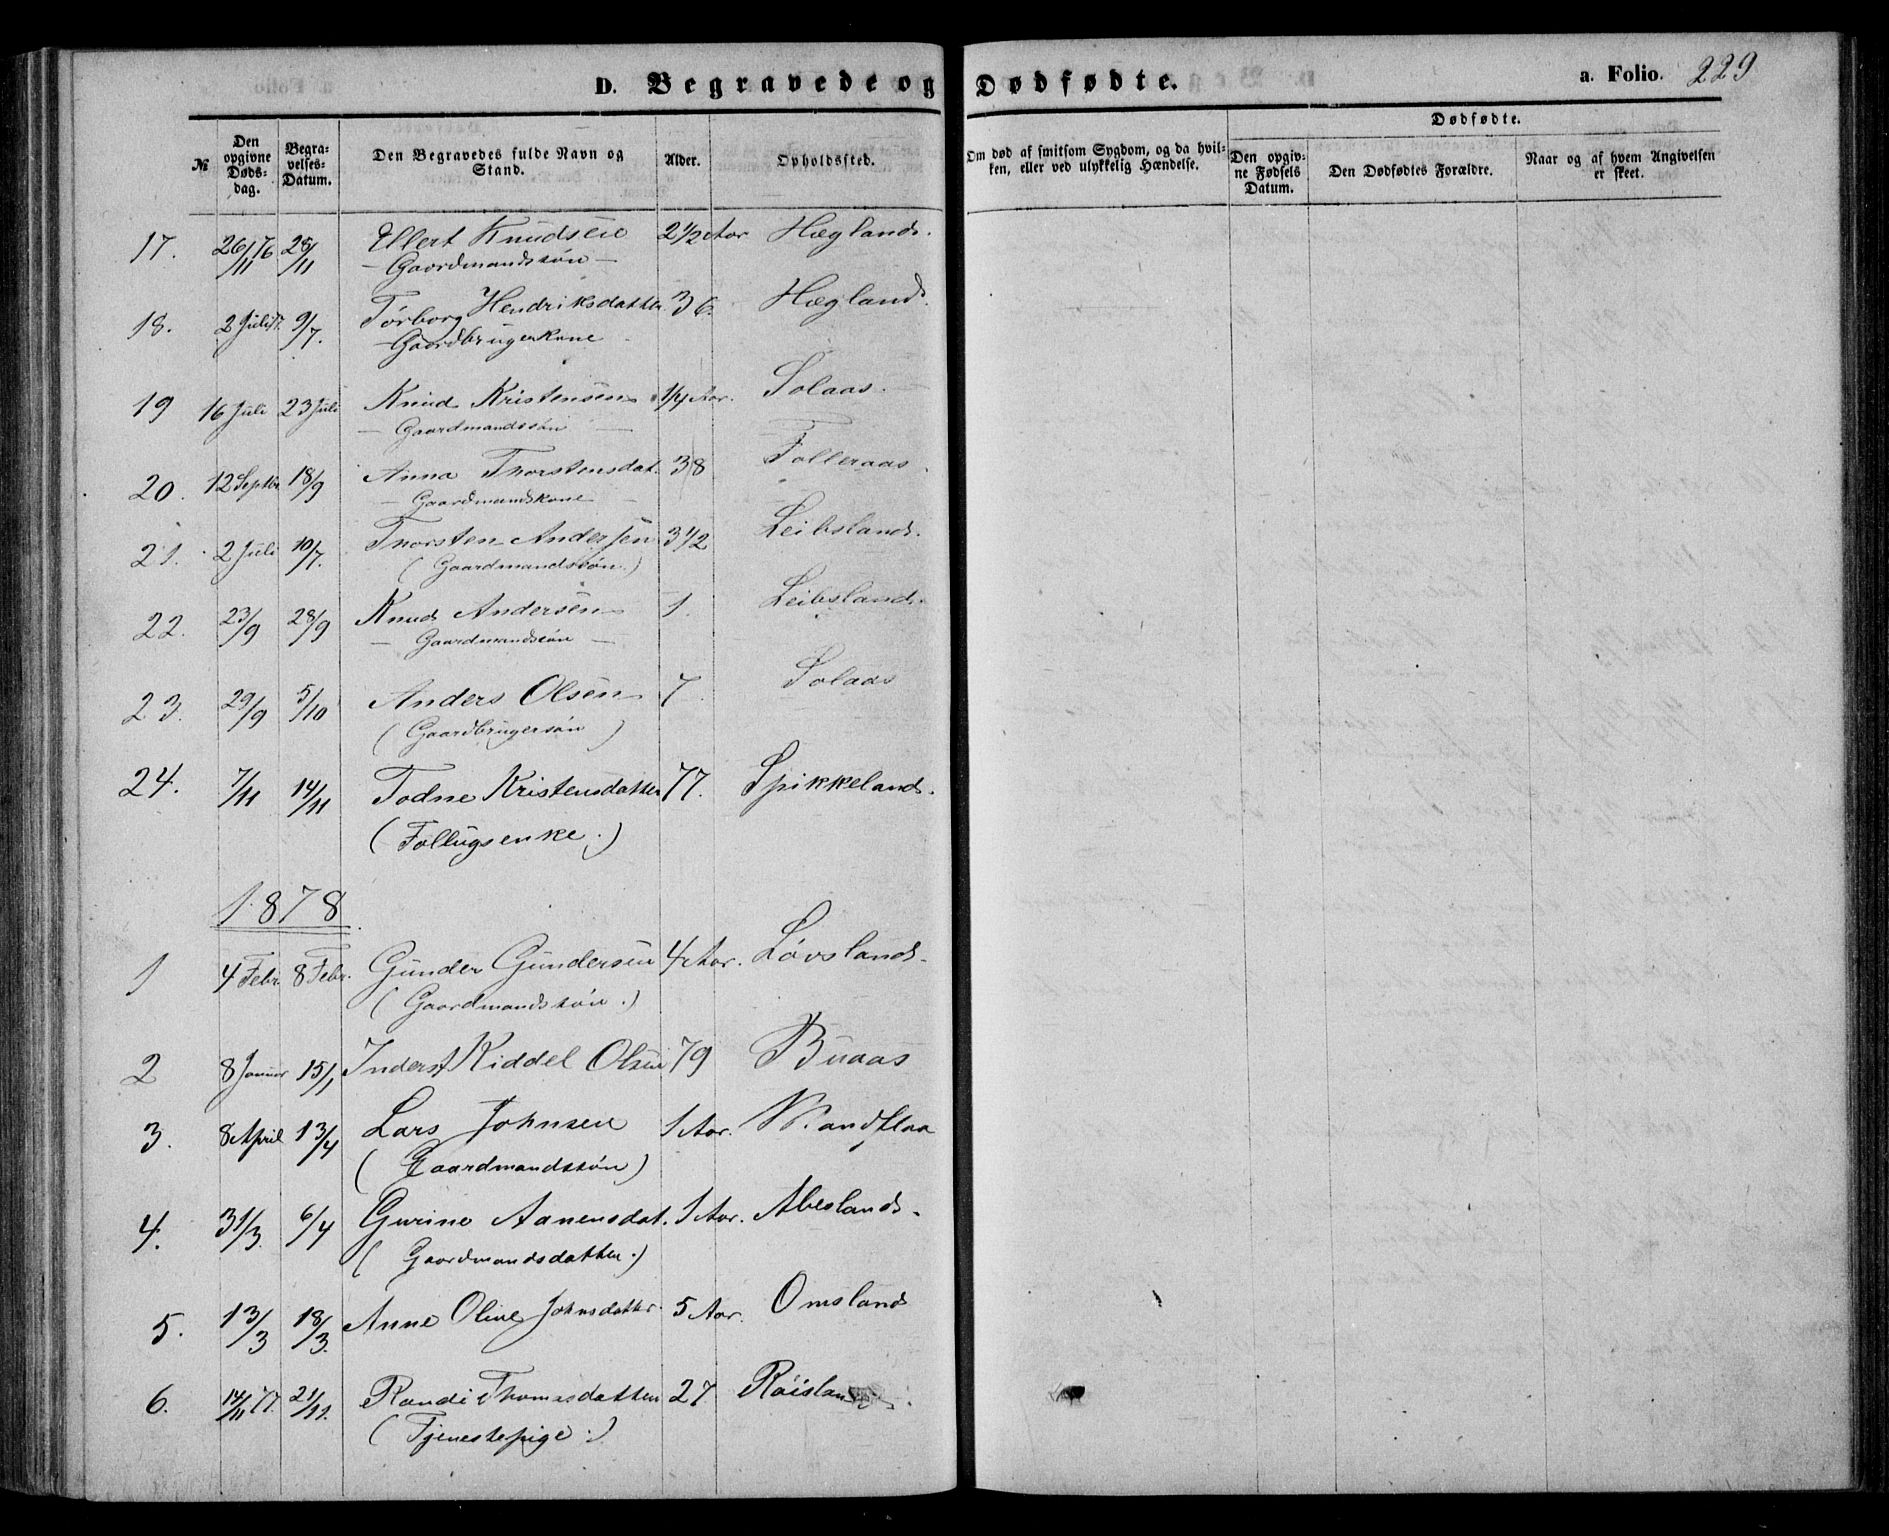 D. Begravede og Dødfødte. a. Folio. 229
№ Den opgivne Døds-dag. Begra-velses-Datum. Den Begravedes fulde Navn og Stand. Alder. Opholdssted. Om død af smitsom Sygdom, og da hvil-ken, eller ved ulykkelig Hændelse. Dødfødte. Den opgiv-ne Fødsels Datum. Den Dødfødtes Forældre. Naar og af hvem Angivelsen er skeet.
17. 26/11 76 28/11 Ellert Knudsen 2 1/2 Aar Hægland.
Gaardmandssøn
18. 2 Juli 77. 9/7. Tørborg Hendriksdatter 36. Hægland.
Gaardbrugerkone
19 16 Juli 23 Juli Knud Kristensen 1/4 Aar. Solaas.
Gaardmandssøn
20. 12 Septbr 18/9 Anna Thorstensdat. 38 Folleraas.
Gaardmandskone
21. 2 Juli 10/7. Thorsten Andersen 3 1/2 Leibsland.
(Gaardmandssøn.)
22. 23/9 28/9 Knud Andersen 1. Leibsland.
Gaardmandssøn
23. 29/9 5/10 Anders Olsen 7. Solaas
(Gaardbrugersøn)
24. 7/11 14/11 Todne Kristensdatter 77. Spikkeland.
(Follugsenke.)
1878.
1 4 Febr 8 Febr. Gunder Gundersen 4 Aar. Løvsland.
(Gaardmandssøn.)
2 8 Januar 15/1 Inderst Kiddel Olsen 79 Buaas
3. 8 April 13/4 Lars Johnsen 1 Aar. Vrandflaa
(Gaardmandssøn)
4. 31/3. 6/4 Gurine Aanensdat. 1 Aar. Abesland.
(Gaardmandsdatter.)
5. 13/3 18/3. Anne Oline Johnsdatter. 5 Aar. Omsland
6. 14/11 77. 21/11. Randi Thomasdatter 27 Røisland.
(Tjenestepige.)